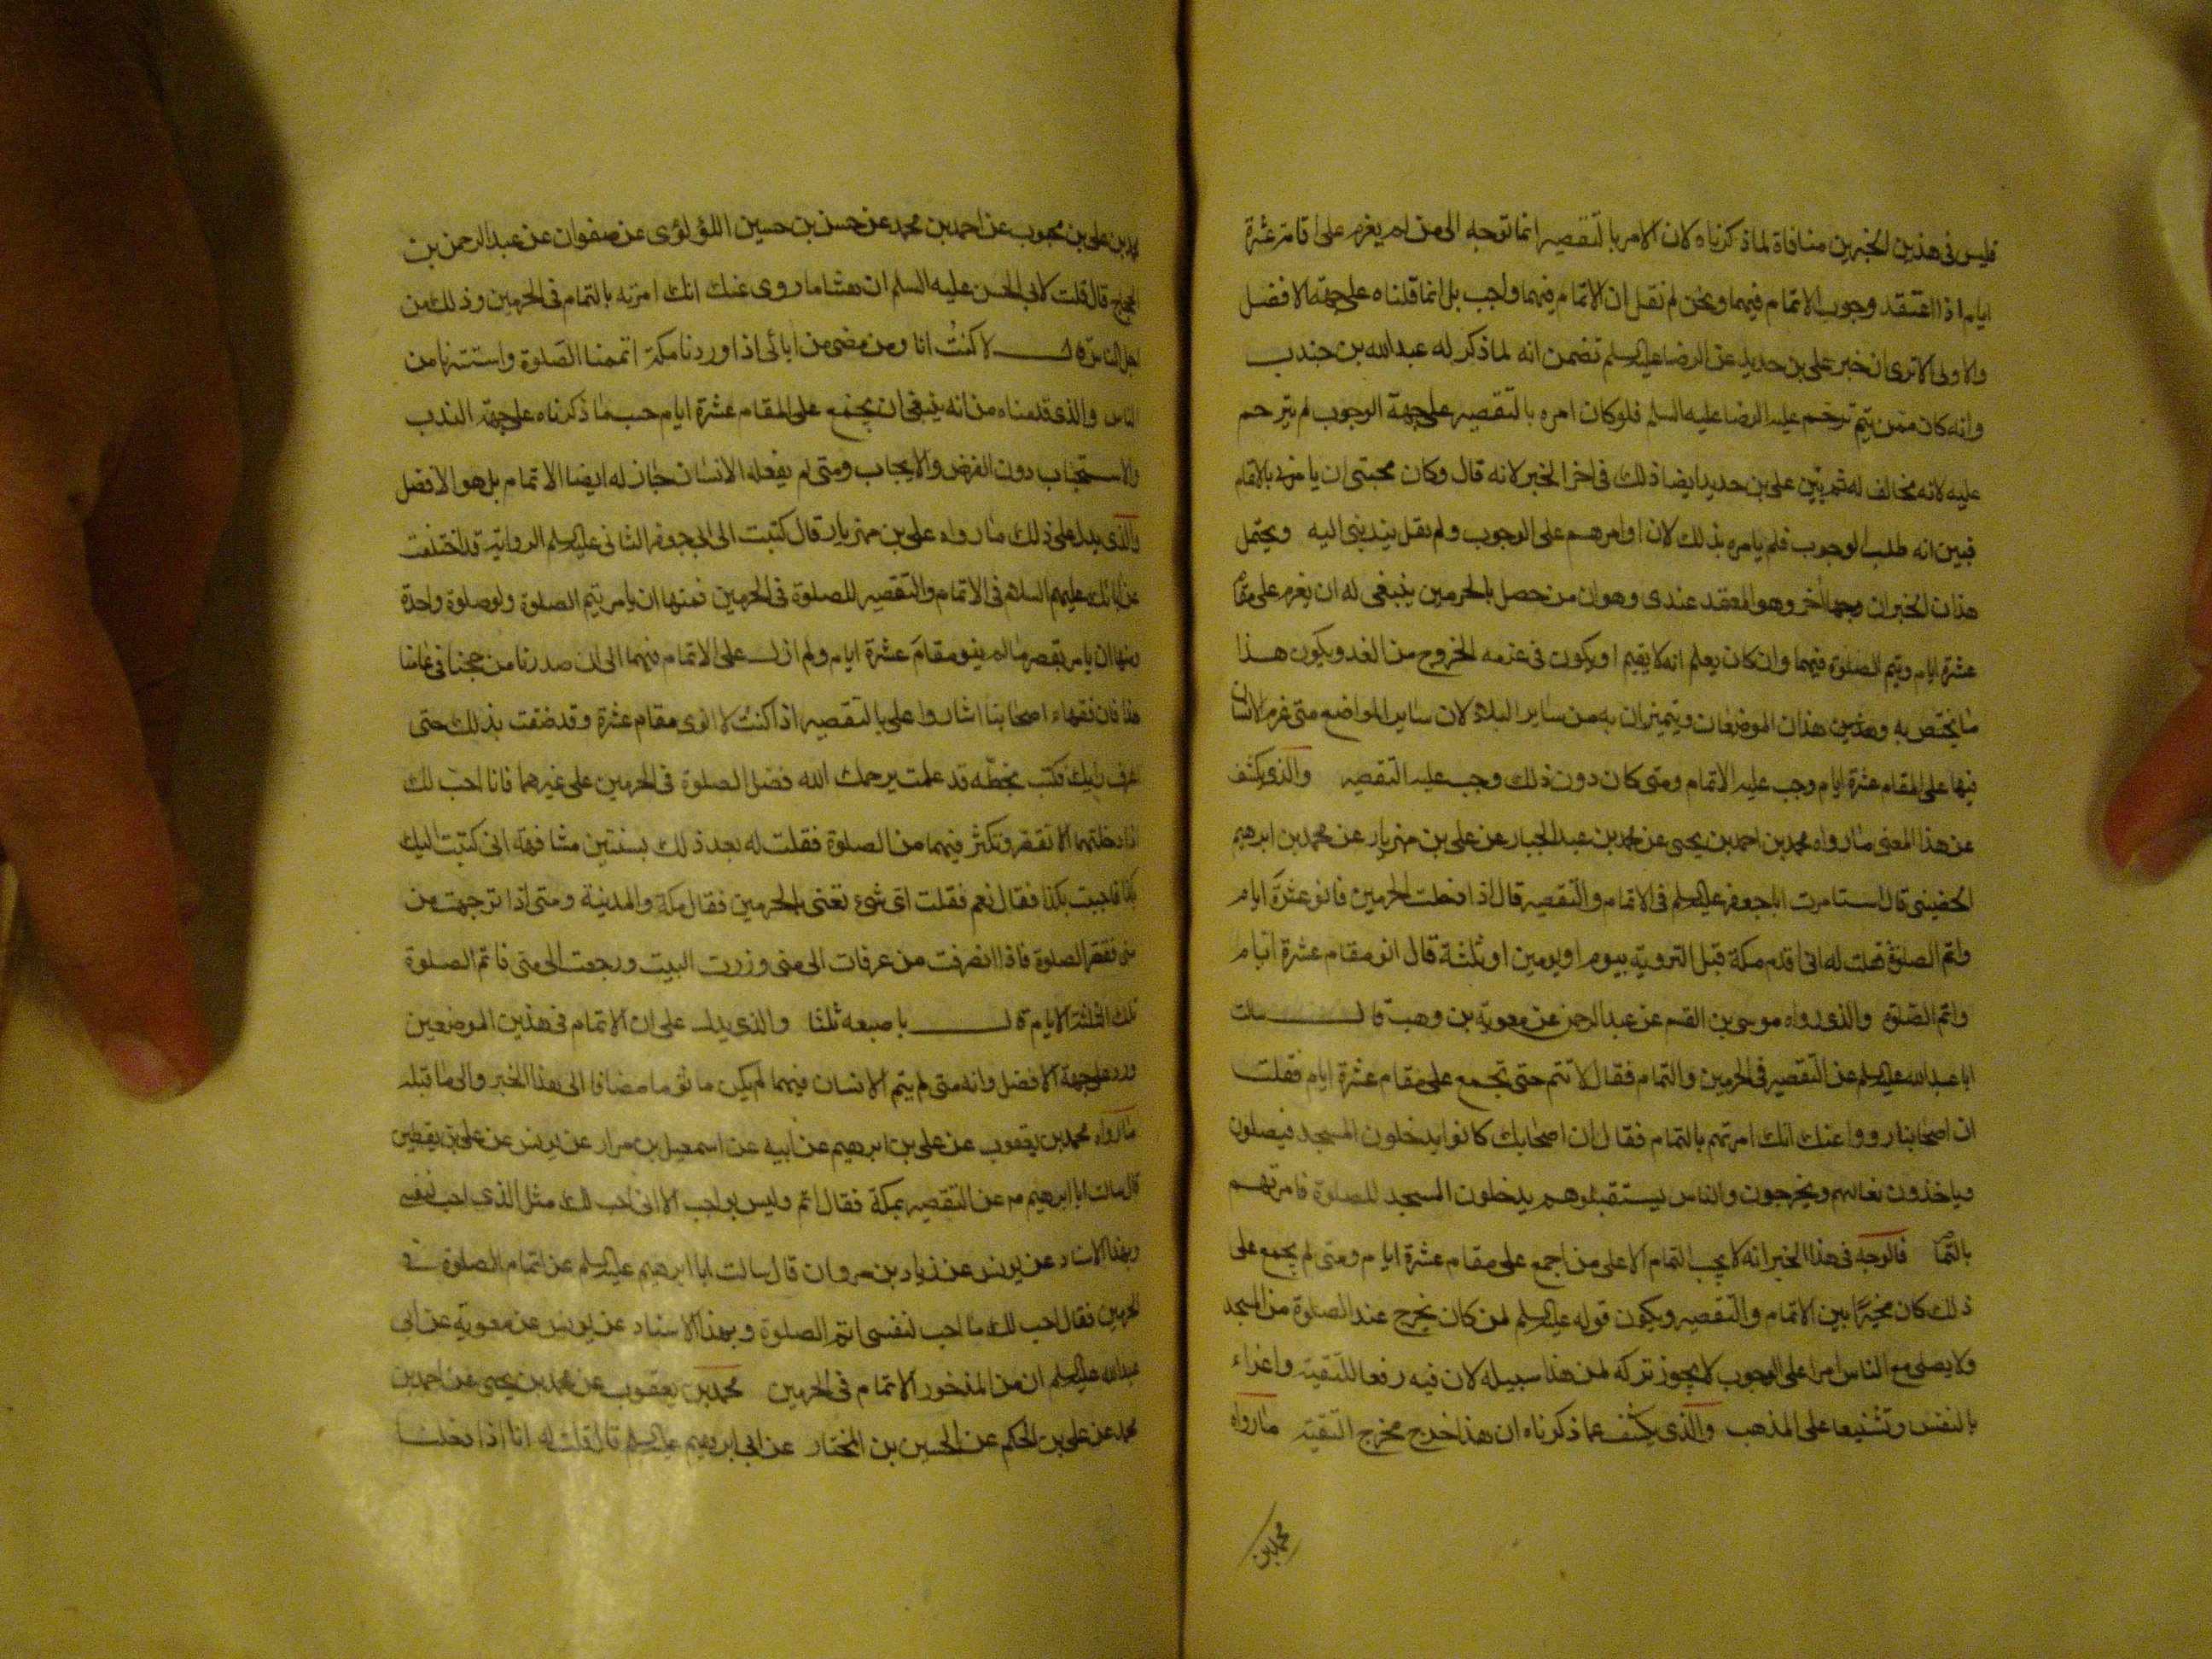 فليس فى هذين الخبرين منافاة لما ذكرناه لان الامر بالتقصير انما توجه الى من لم يعزم على اقامة عشرة
ايام اذا اعتقد وجوب الاتمام فيهما ونحن لم نقل ان الاتمام فيهما واجب بل انما قلناه على جهة الافضل
والاولى الا ترى ان خبر على بن حديد عن الرضا عليه السلم تضمن انه لما ذكر له عبد الله بن جندب
وانه كان ممن يتم ترحم عليه الرضا عليه السلم فلو كان امره بالتقصير على جهة الوجوب لم يترحم
عليه لانه مخالف له ثم بين على بن حديد ايضا ذلك فى اخر الخبر لانه قال وكان محبتى ان يامرنى بالاتمام
فبين انه طلب الوجوب فلم يامره بذلك لان اوامرهم على الوجوب ولم يقل يندبنى اليه ويحتمل
هذان الخبران وجها اخر وهو المعتمد عندى وهو ان من حصل بالحرمين ينبغى له ان يعزم على مقام
عشرة ايام ويتم الصلوة فيهما وان كان يعلم انه لا يقيم او يكون فى عزمه الخروج من الغد ويكون هذا
ما يختص به هذان الموضعان ويتميزان به من ساير البلاد لان ساير المواضع متى عزم الانسان
فيها على المقام عشرة ايام وجب عليه الاتمام ومتى كان دون ذلك وجب عليه التقصير والذى يكشف
عن هذا المعنى ما رواه محمد بن احمد بن يحيى عن محمد بن عبد الجبار عن على بن مهزيار عن محمد بن ابرهيم
الحضينى قال استامرت ابا جعفر عليه السلم فى الاتمام والتقصير قال اذا دخلت الحرمين فانو عشرة ايام
واتم الصلوة فقلت له انى اقدم مكة قبل التروية بيوم او يومين او ثلثة قال انو مقام عشرة ايام
واتم الصلوة والذى رواه موسى بن القسم عن عبد الرحمن عن معوية بن وهب قال سالت
ابا عبد الله عليه السلم عن التقصير فى الحرمين والتمام فقال لا تتم حتى تجمع على مقام عشرة ايام فقلت
ان اصحابنا رووا عنك انك امرتهم بالتمام فقال ان اصحابك كانوا يدخلون المسجد فيصلون
وياخذون نعالهم ويخرجون والناس يستقبلوهم يدخلون المسجد للصلوة فامرتهم
بالتمام فالوجه فى هذا الخبر انه لا يجب التمام الا على من اجمع على مقام عشرة ايام ومتى لم يجمع على
ذلك كان مخيرا بين الاتمام والتقصير ويكون قوله عليه السلم لمن كان يخرج عند الصلوة من المسجد
ولا يصلى مع الناس امرا على الوجوب لا يجوز تركه لمن هذا سبيله لان فيه رفعا للتقية واغراء
بالنفس وتشنيعا على المذهب والذى يكشف عما ذكرناه ان هذا خرج مخرج التقية ما رواه
محمد بن
محمد بن على بن محبوب عن احمد بن محمد عن حسن بن حسين اللؤلؤى عن صفوان عن عبد الرحمن بن
الحجاج قال قلت لابى الحسن عليه السلم ان هشاما روى عنك انك امرته بالتمام فى الحرمين وذلك من
اجل الناس قال لا كنت انا ومن مضى من ابائى اذا وردنا مكة اتممنا الصلوة واستترنا من
الناس والذى قدمناه من انه ينبغى ان يجمع على المقام عشرة ايام حسب ما ذكرناه على جهة الندب
والاستحباب دون الفرض والايجاب ومتى لم يفعله الانسان جاز له ايضا الاتمام بل هو الافضل
والذى يدل على ذلك ما رواه على بن مهزيار قال كتبت الى ابى جعفر الثانى عليه السلم الرواية قد اختلفت
عن ابائك عليهم السلام فى الاتمام والتقصير للصلوة فى الحرمين فمنها ان يامر بتم الصلوة ولو صلوة واحدة
ومنها ان يامر بقصر ما لم ينو مقام عشرة ايام ولم ازل على الاتمام فيهما الى ان صدرنا من حجنا فى عامنا
هذا فان فقهاء اصحابنا اشاروا على بالتقصير اذا كنت لا انوى مقام عشرة وقد ضقت بذلك حتى
اعرف رايك فكتب بخطه قد علمت يرحمك الله فضل الصلوة فى الحرمين على غيرهما فانا احب لك
اذا دخلتهما الا تقصر وتكثر فيهما من الصلوة فقلت له بعد ذلك بسنتين مشافهة انى كتبت اليك
بكذا فاجبت بكذا فقال نعم فقلت اى شئ تعنى بالحرمين فقال مكة والمدينة ومتى اذا توجهت من
منى فقصر الصلوة فاذا انصرفت من عرفات الى منى وزرت البيت ورجعت الى منى فاتم الصلوة
تلك الثلثة الايام قال باصبعه ثلثا والذى يدل على ان الاتمام فى هذين الموضعين
ورد على جهة الافضل وانه متى لم يتم الانسان فيهما لم يكن ماثوما مضافا الى هذا الخبر والى ما قبله
ما رواه محمد بن يعقوب عن على بن ابرهيم عن ابيه عن اسمعيل بن مرار عن يونس عن على بن يقطين
قال سالت ابا ابرهيم عن التقصير بمكة فقال اتم وليس بواجب الا انى احب لك مثل الذى احب لنفسى
وبهذا الاسناد عن يونس عن زياد بن مروان قال سالت ابا ابرهيم عليه السلم عن اتمام الصلوة فى
الحرمين فقال احب لك ما احب لنفسى اتم الصلوة وبهذا الاسناد عن يونس عن معوية عن ابى
عبد الله عليه السلم ان من المذخور الاتمام فى الحرمين محمد بن يعقوب عن محمد بن يحيى عن احمد بن
محمد عن على بن الحكم عن الحسين بن المختار عن ابى ابرهيم عليه السلم قال قلت له انا اذا دخلنا